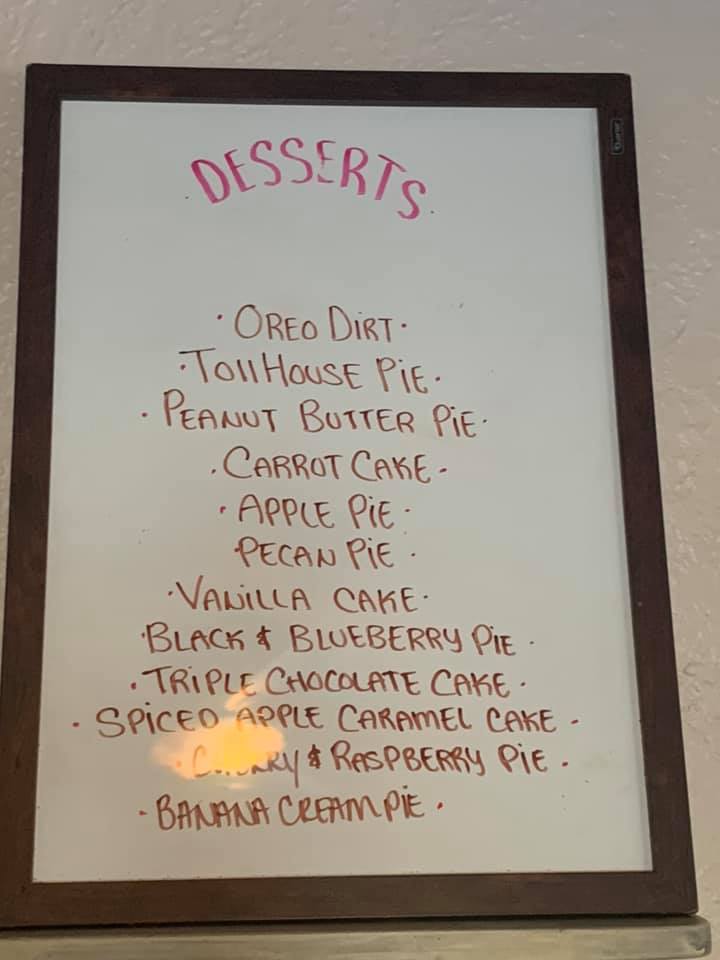 DESSERTS
· OREO DIRT ·
· TOllHOUSE PiE ·
· PEANUT BUTTER PiE ·
· CARROT CAKE ·
· APPLE PiE ·
· PECAN PiE ·
· VANiLLA CAKE ·
· BLACK & BLUEBERRY PiE ·
· TRiPLE CHOCOLATE CAKE ·
· SPiCED APPLE CARAMEL CAKE ·
& RASPBERRY PiE ·
· BANANA CREAM PiE ·